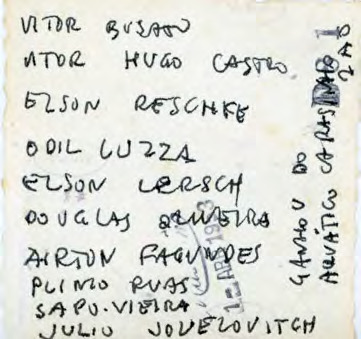 VITOR BUSATO
VITOR HUGO CASTRO
ELSON RESCHKE
ODIL LUZZA
ELSON LERSCH
DOUGLAS OLIVEIRA
AIRTON FAGUNDES
PLINIO RUAS
SAPO.VIEIRA
JULIO JOVELOVITCH
GANHOU DO
AQUÁTICO